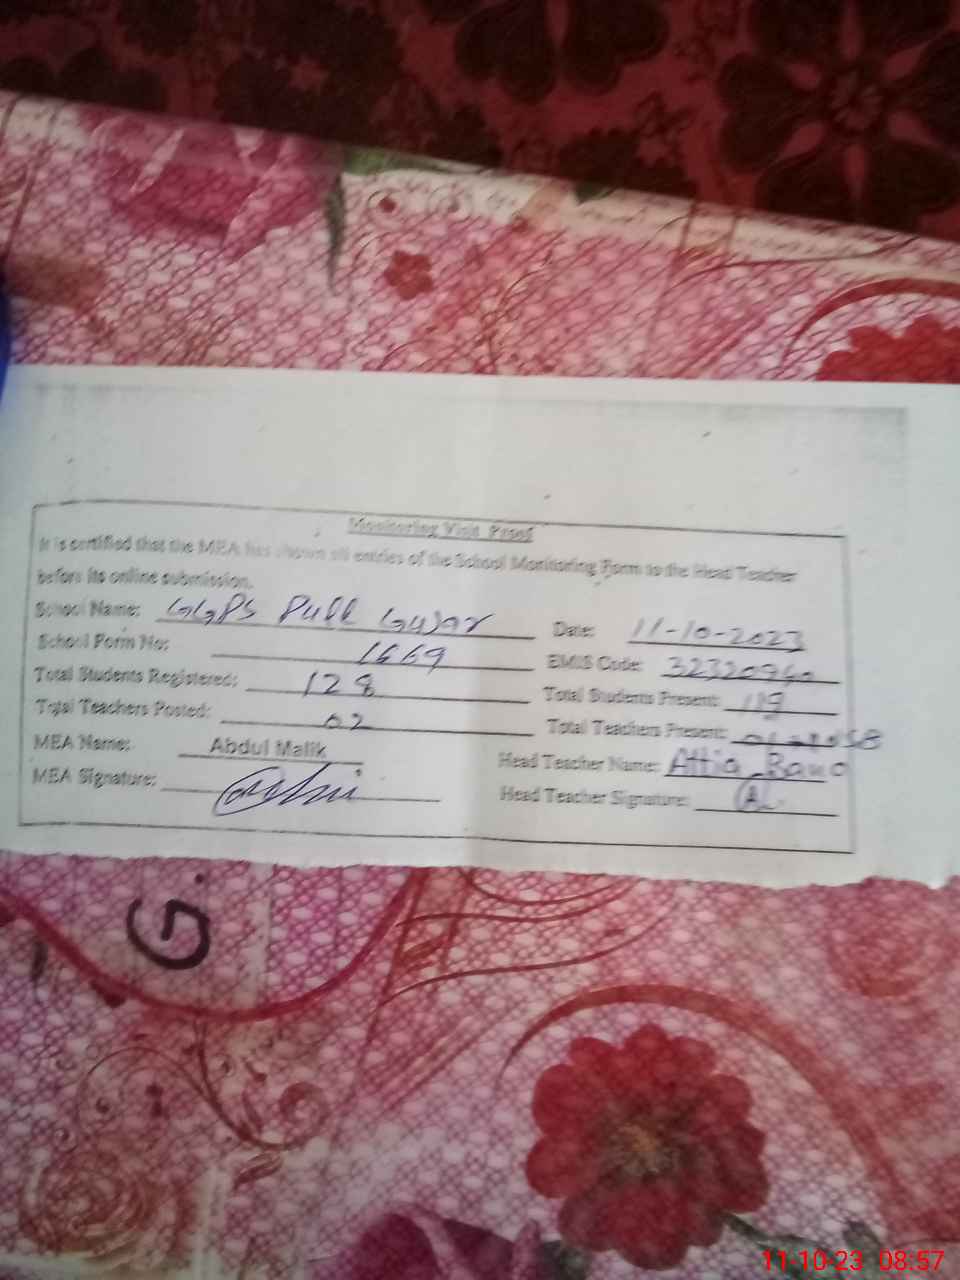 Monitoring Visit Proof
It is certified that the MEA has shown all entries of the School Monitoring Form to the Head Teacher
before its online submission.
School Name: GGPS Pull Gujar Date: 11-10-2023
School Form No: 1669 EMIS Code: 32320960
Total Students Registered: 128 Total Students Present: 119
Total Teachers Posted: 02 Total Teachers Present:
MEA Name: Abdul Malik Head Teacher Name: Attia Bano
MEA Signature: Head Teacher Signature:
G.
11-10-23 08:57